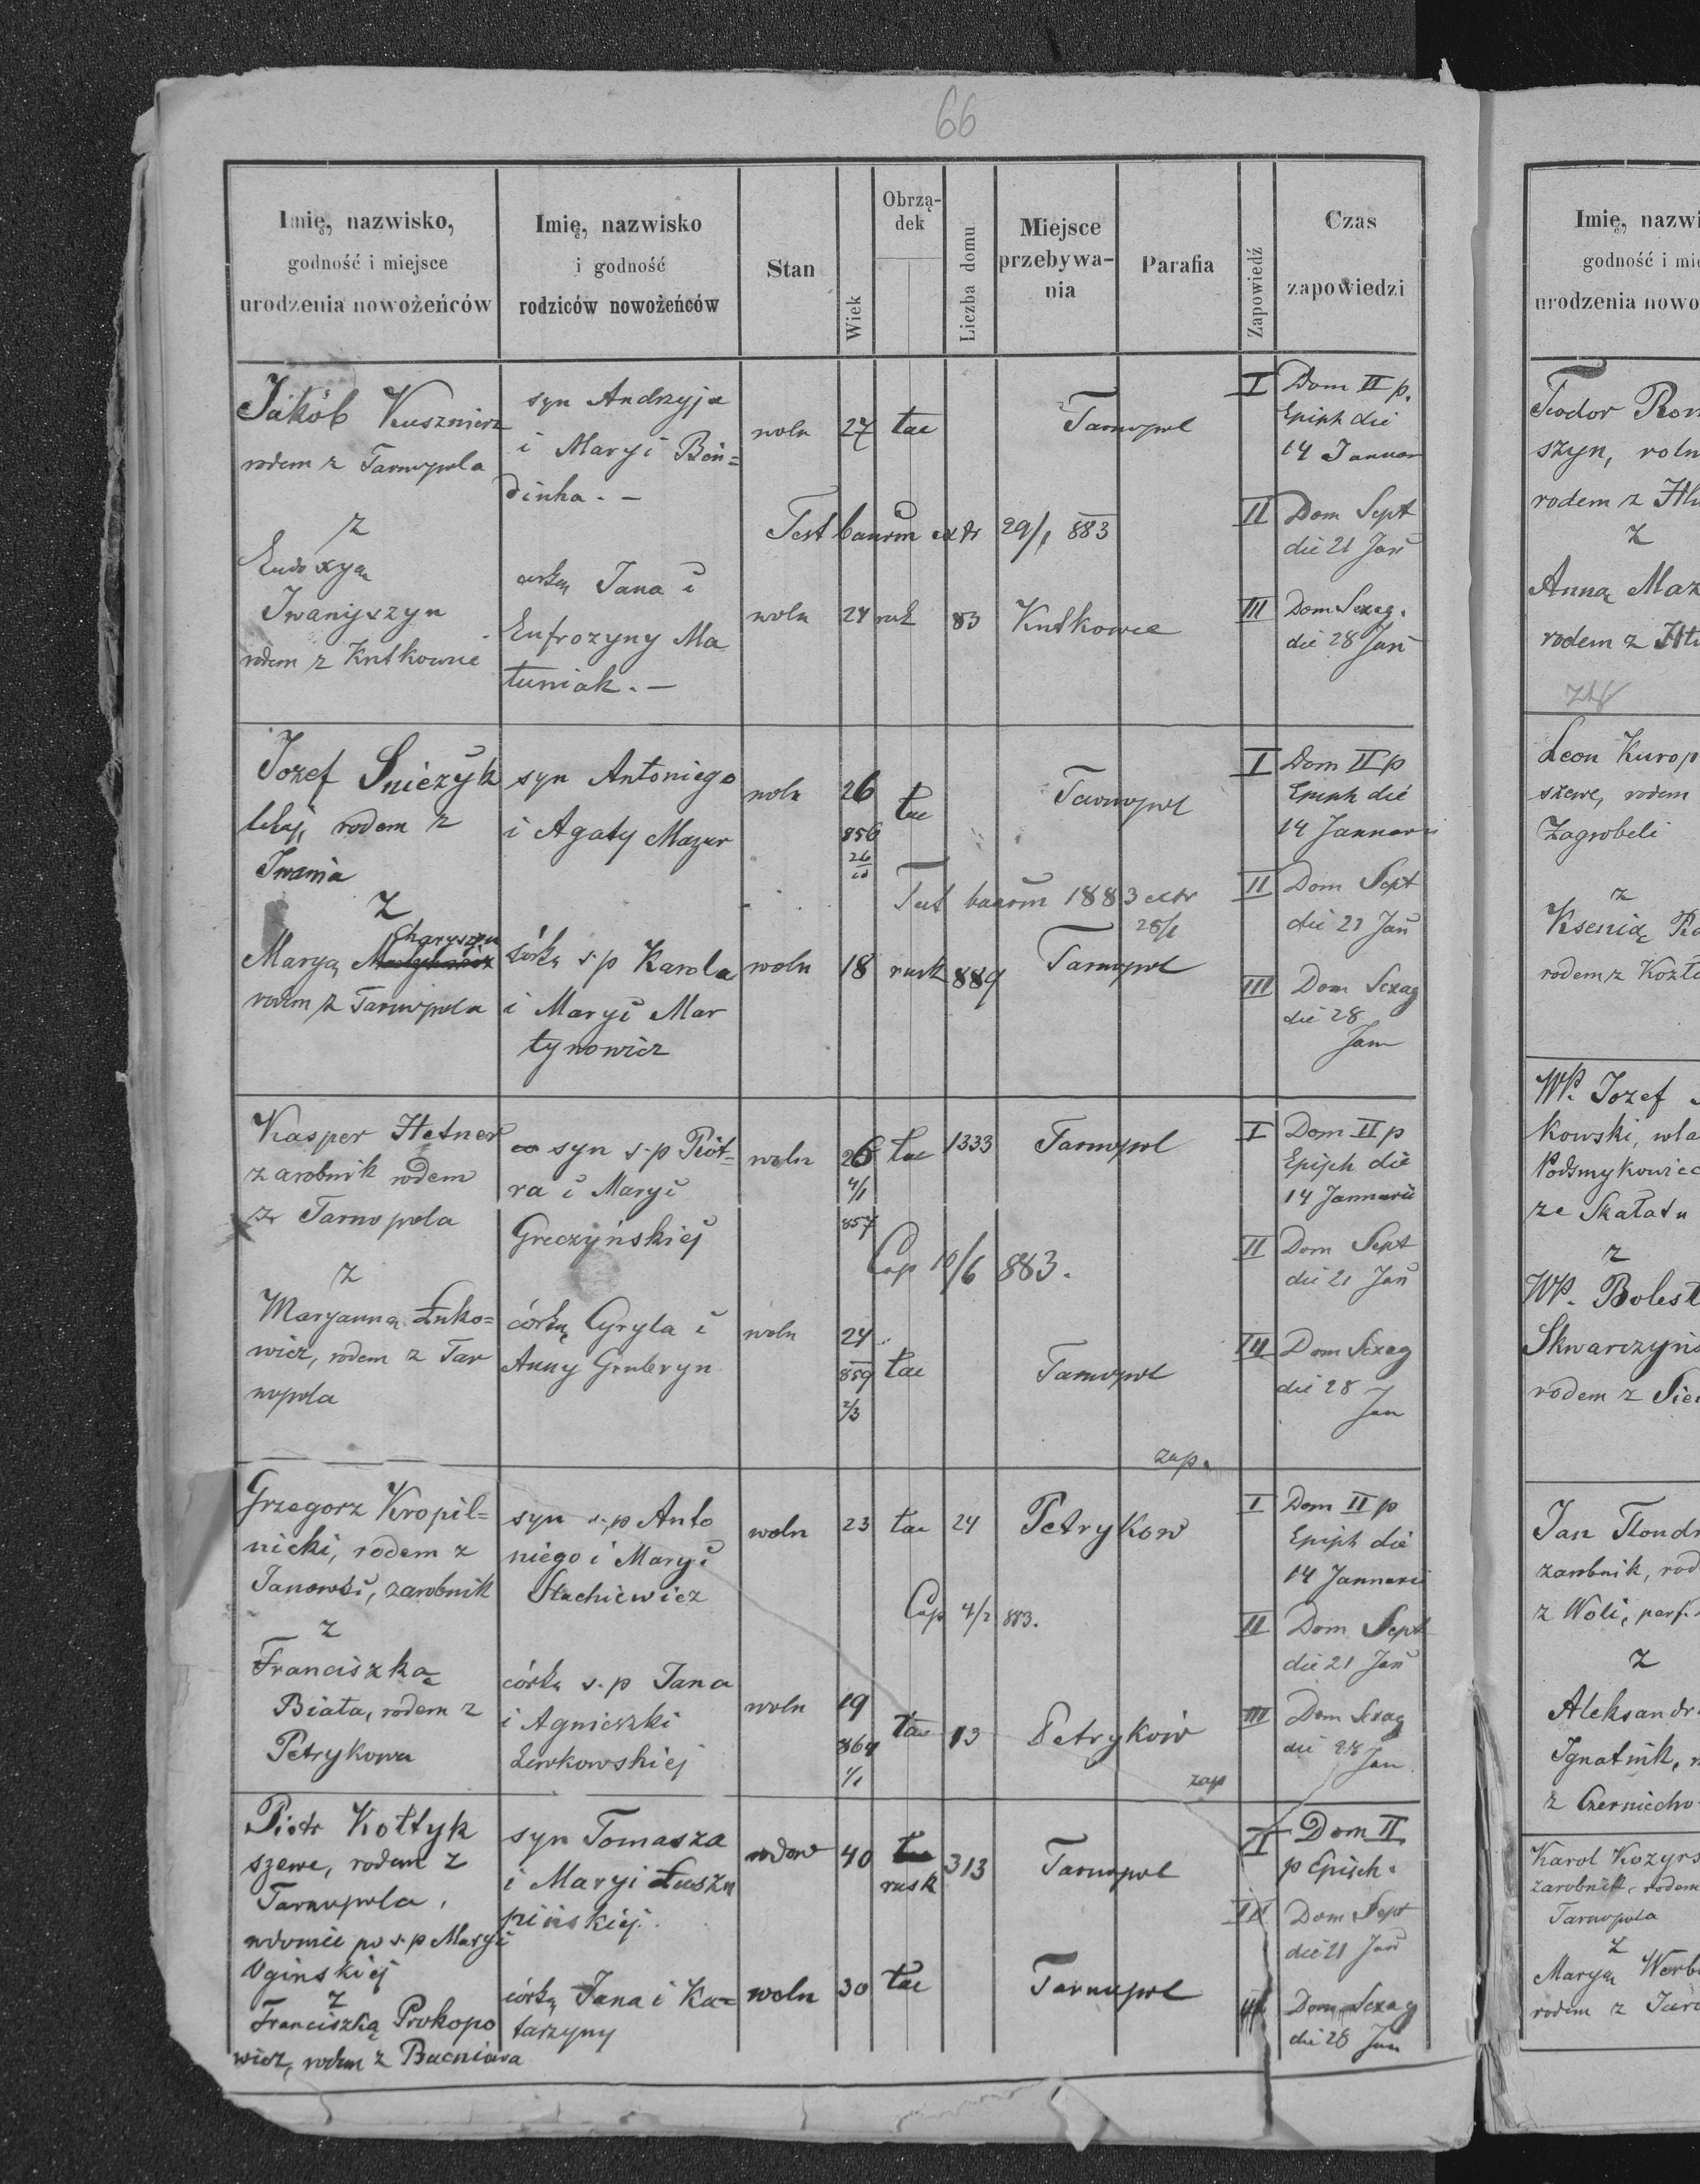 66
Imię, nazwisko,
godność i miejsce
urodzenia nowożeńców
Imię, nazwisko
i godność
rodziców nowożeńców
Stan
Wiek
Obrzą-
dek
Liczba domu
Miejsce
przebywa-
nia
Parafia
Zapowiedź
Czas
zapowiedzi
Jakób Kusznierz
rodem z Tarnopola
z
Eudoxyą
Iwaniszyn
rodem z Kutkowiec
syn Andrzyja
i Maryi Bon=
dinha. —
córką Jana i
Eufrozyny Ma
tuniak. —
woln 27 łac Tarnopol
Test bannm extr 29/1 883
woln 24 rusk 83 Kutkowce
I Dom II p.
Epiph die
14 Januar
II Dom Sept
die 21 Jan
III Dom Sexag.
die 28 Jan
Jozef Snieżyk
rodem z
z
Charyszyn
Maryą
rodem z Tarnopola
syn Antoniego
i Agaty Mazur
córką s.p Karola
i Maryi Mar
tynowicz
woln 26 łac Tarnopol
856
26
Test bannm 1883 extr
28/1
woln 18 rusk 889 Tarnopol
I Dom II p
Epiph die
14 Januarii
II Dom Sept
die 21 Jan
III Dom Sexag
die 28
Jan
Kasper Hetner
zarobnik rodem
z Tarnopola
z
Maryanną Łuko=
wicz, rodem z Tar
nopola
syn s.p Piot=
ra i Maryi
Greczyńskiej
córką Cyryla i
Anny Grubryn
woln 26 łac 1333 Tarnopol
4/1
857
Cop 10/6 883.
woln 24 łac Tarnopol
859
2/3
I Dom II p
Epiph die
14 Januarii
II Dom Sept
die 21 Jan
III Dom Sexag
die 28
Jan
zap.
Grzegorz Kropil=
nicki, rodem z
Janowki, zarobnik
z
Franciszką
Biała, rodem z
Petrykowa
syn s.p Anto
niego i Maryi
Stachiewicz
córką s.p Jana
i Agnieszki
Lewkowskiej
woln 23 łac 24 Petrykow
Cop 4/2 883.
woln 19 łac 13 Petryków
864
1/1
zap
I Dom II p
Epiph die
14 Januarii
II Dom Sept
die 21 Jan
III Dom Sexag
die 28 Jan
Piotr Kołtyk
szewc, rodem z
Tarnopola,
wdowiec po s.p Maryi
Oginskiej
z
Franciszką Prokopo
wicz, rodem z Bucniowa
syn Tomasza
i Maryi Łuszn
pińskiej.
córką Jana i Ka=
tarzyny
wdow 40 łac 313 Tarnopol
rusk
woln 30 łac Tarnopol
I Dom II
p Epiph.
II Dom Sept
die 21 Jan
III Dom Sexag
die 28 Jan
Imię, nazwi
godność i mie
urodzenia nowo
Teodor Rom
szyn, roln
rodem z Hłu
z
Anną Maz
rodem z Hłu
Leon Kurop
szewc, rodem
Zagrobeli
z
Ksenią Ra
rodem z Kozło
WP. Jozef
kowski, wła
Podsmykowiec
ze Skałatu
z
WP. Bolest
Skwarczyńs
rodem z Sie
Jan Flondr
zarobnik, rod
z Woli, parf.
z
Aleksandr
Ignatnik,
z Czerniecho
Karol Kozyrs
zarobnik, rodem
Tarnopola
z
Maryą Werb
rodem z